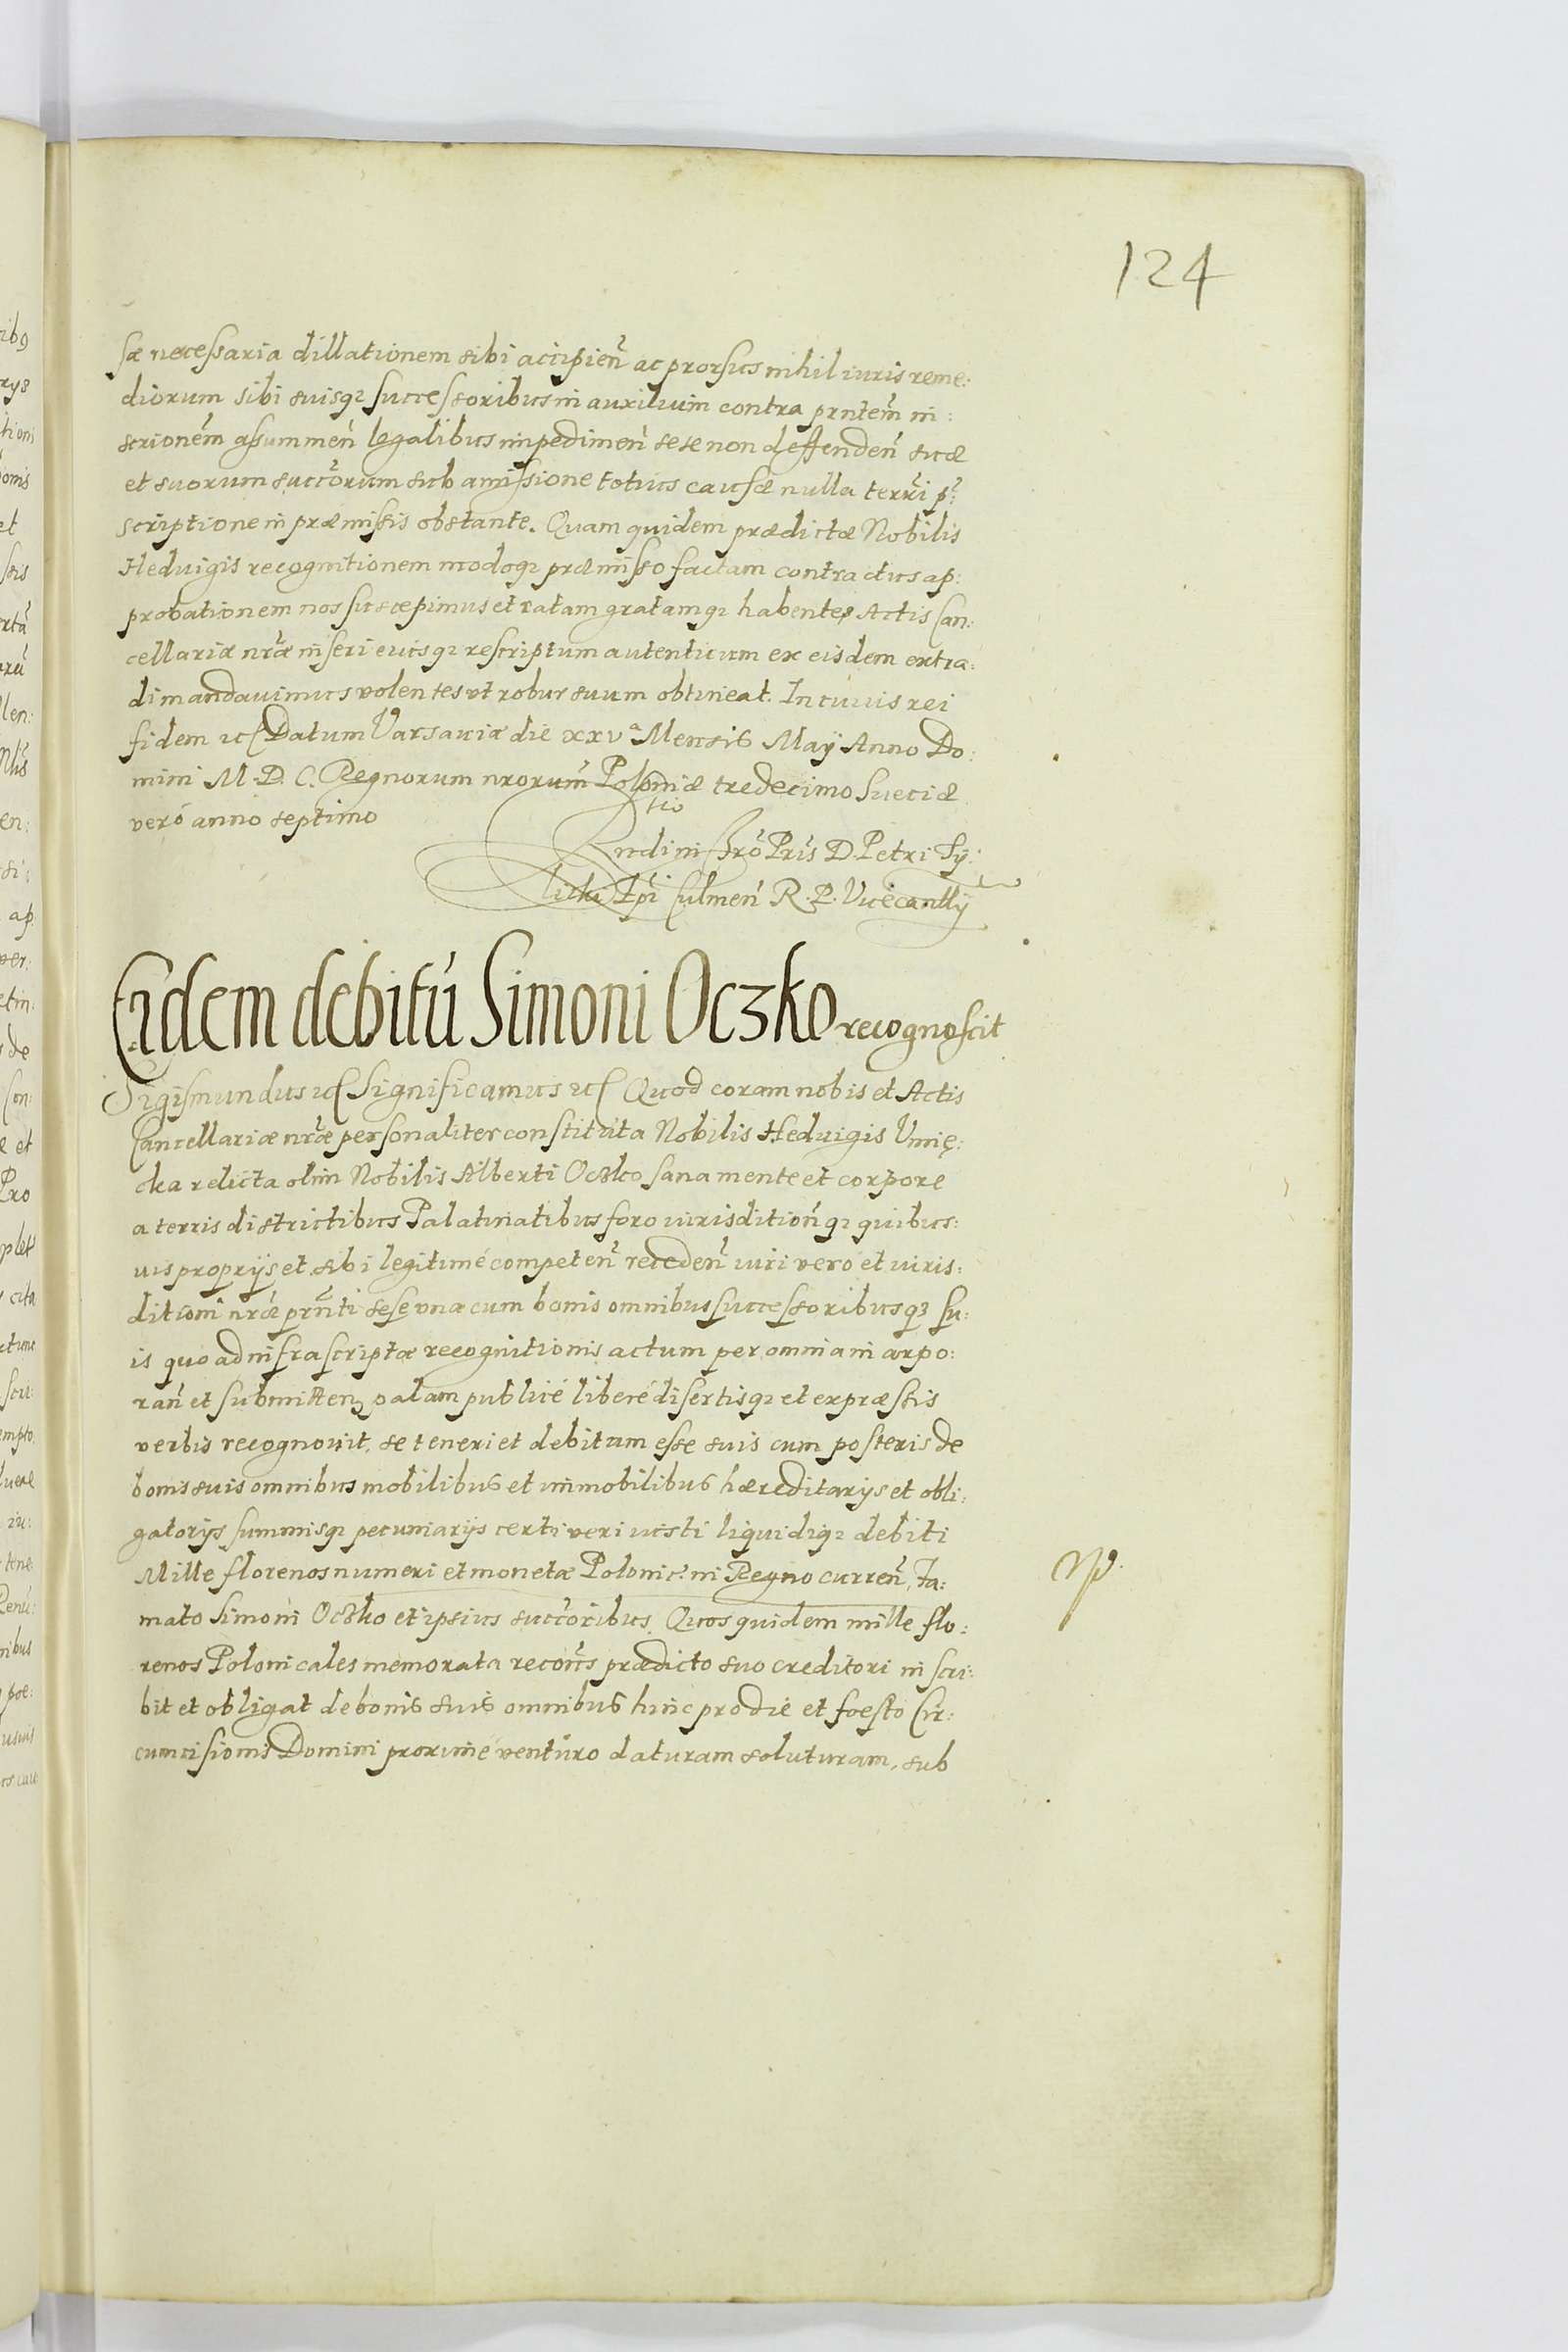 124
sæ necessaria dillationem sibi accipień ac prorsus nihil iuris reme:
diorum sibi suisq3 successoribus in auxilium contra prntem in:
scrionem assummeń legalibus impedimeń sese non deffendeń suæ
et suorum succorum sub amissione totius causæ nulla terri p:
scriptione in præmissis obstante. Quam quidem prædictæ Nobilis
Heduigis recognitionem modoq3 præmisso factam contractus ap:
probationem nos suscepimus et ratam gratamq3 habentes Actis Can:
cellariæ nræ inseri eiusq3 rescriptum autenticum ex eisdem extra:
di mandauimus volentes vt robur suum obtineat. In cuius rei
fidem etc Datum Varsauiæ die xxv a Mensis Maÿ Anno Do:
mini M. D. C. Regnorum nrorum Poloniæ tredecimo Sueciæ
veró anno septimo
Rndi in Chro Pris D. Petri Ty:
licki Epi Culmeń R. P. Vicecancllÿ
Eidem debitú Simoni Oczko recognoscit
Sigismundus etc Significamus etc Quod coram nobis et Actis
Cancellariæ nræ personaliter constituta Nobilis Heduigis Vmię:
cka relicta olim Nobilis Alberti Oczko sana mente et corpore
a terris districtibus Palatinatibus foro iurisditionq3 quibus:
uis proprÿs et sibi legitimé competeń recedeń iuri vero et iuris:
ditioni nræ prnti sese vna cum bonis omnibus successoribusq3 su:
is quo ad infrascriptæ recognitionis actum per omnia in corpo:
rań et submitten palam publicé liberé disertisq3 et expræssis
verbis recognouit, se teneri et debitam esse suis cum posteris de
bonis suis omnibus mobilibus et immobilibus hæreditarÿs et obli:
gatorÿs summisq3 pecuniarÿs certi veri iusti liquidiq3 debiti
Mille florenos numeri et monetæ Polonic. in Regno curreń, Fa:
mato Simoni Oczko et ipsius succoribus. Quos quidem mille flo:
renos Polonicales memorata recońs prædicto suo creditori inscri:
bit et obligat de bonis suis omnibus hinc pro die et foesto Cir:
cumcisionis Domini proximé venturo daturam soluturam, sub